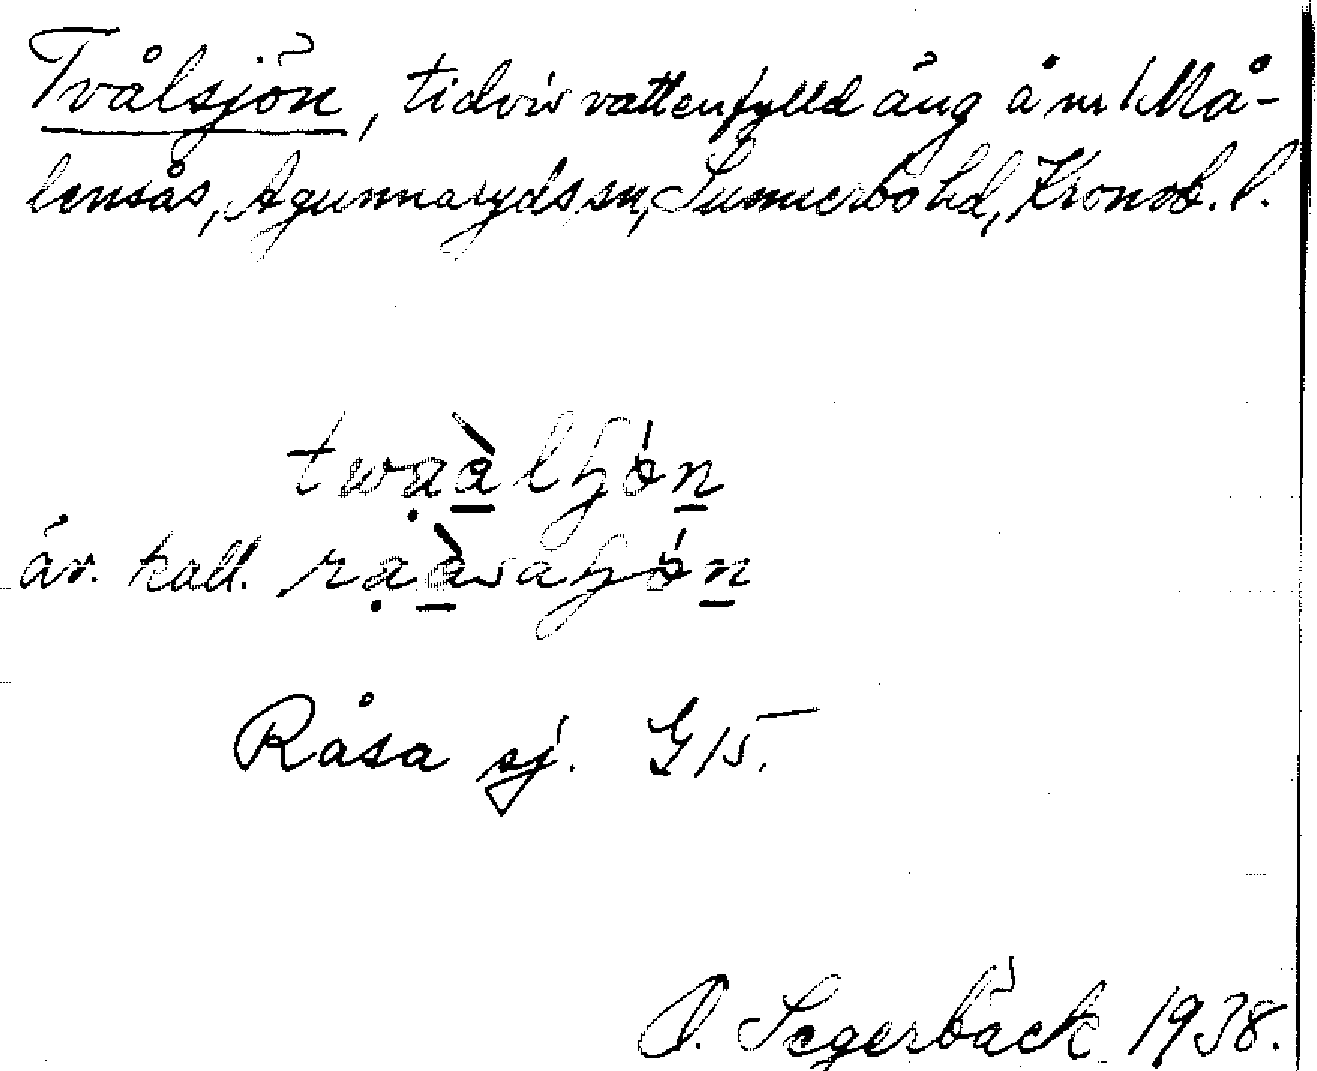 Tvålsjön, tidvis vattenfylld äng å nr 1 Må-
lensås, Agunnaryds sn, Sunnerbo hd, Kronob. l.
äv. kall.
Råsa sj. G 15.
O. Segerbäck 1938.